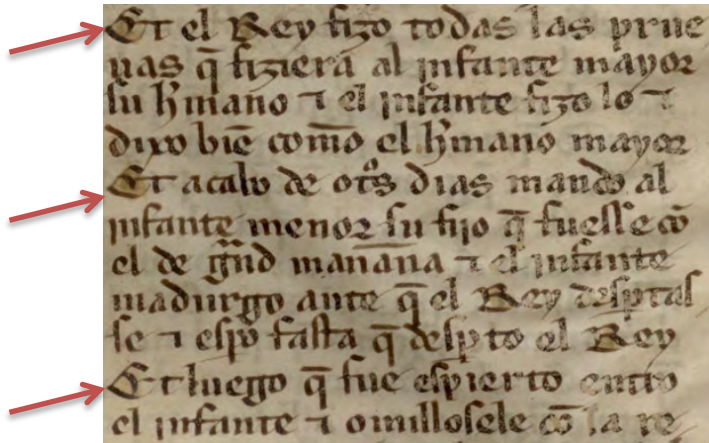 Et el Rey fizo todas las prue
uas q̃ fiziera al jnfante mayor
su h̃mano ⁊ el jnfante fizo lo ⁊
dixo biẽ com̃o el h̃mano mayor
Et acabo de ot͛s dias mando al
jnfante menor su fijo q̃ fuesse cõ
el de g̃nd mañana ⁊ el jnfante
madurgo ante q̃ el Rey desptas
se ⁊ esꝑo fasta q̃ despto el Rey
Et luego q̃ fue espierto entro
el jnfante ⁊ omillosele cõ la re